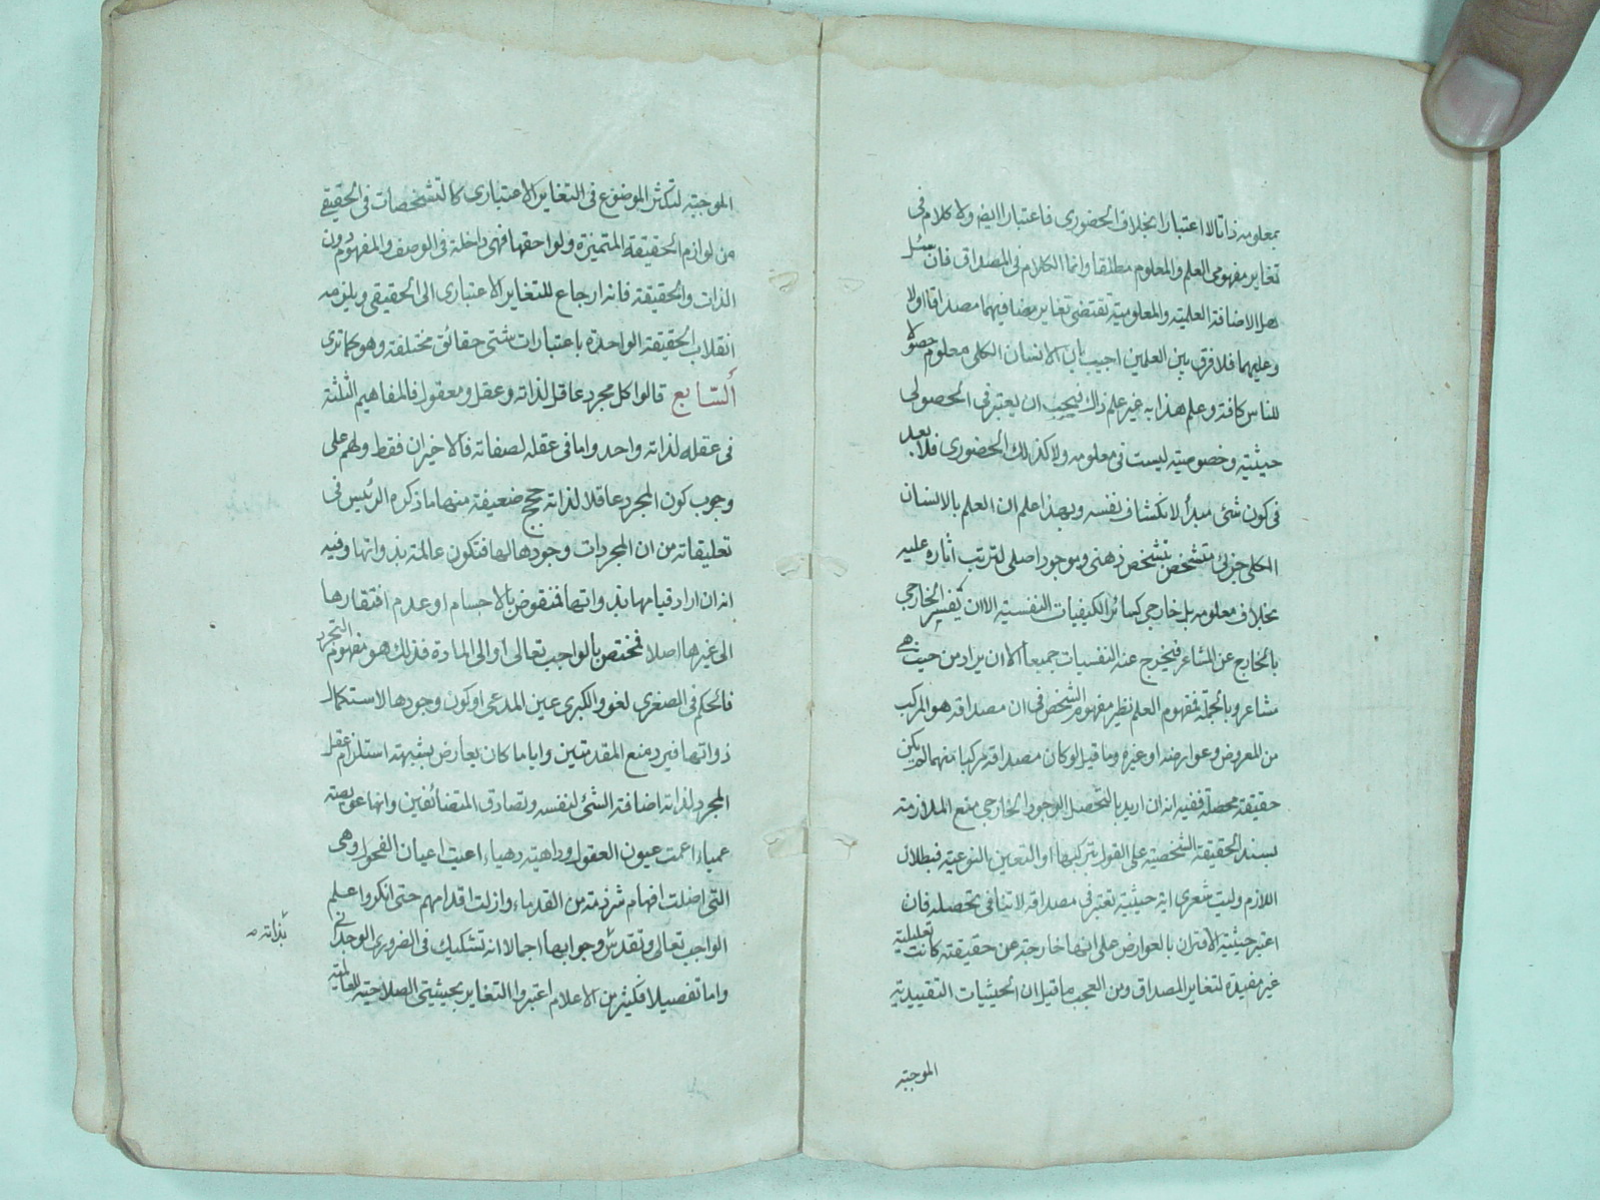 بمعلومه ذاتا لا اعتبارا بخلاف الحضوري فاعتبارا ايض ولا كلام فى
تغاير مفهومى العلم والمعلوم مطلقا وانما الكلام فى المصداق فان سئل
هلا الاضافة العلمية والمعلومية تقتضى تغاير مضافيهما مصداقا اولا
وعليهما فلا فرق بين العلمين اجيب بان الانسان الكلى معلوم حصولا
للناس كافة وعلم هذا به غير علم ذاك فيجب ان يعتبر فى الحصولى
حيثية وخصوصية ليست فى معلومه ولا كذلك الحضوري فلا بعد
فى كون شئ مبدأ لانكشاف نفسه وبهذا علم ان العلم بالانسان
الكلى جزئى متشخص بتشخص ذهنى وموجود اصلى لترتب اثاره عليه
بخلاف معلومه بل خارجى كسائر الكيفيات النفسية الا ان يفسر الخارجى
بالخارج عن المشاعر فيخرج عنه النفسيات جميعا الا ان يراد من حيث هى
مشاعر وبالجملة فمفهوم العلم نظير مفهوم الشخص فى ان مصداقه هو المركب
من المعروض وعوارضه او غيره وما قيل لو كان مصداقه مركبا منهما لم يكن
حقيقة محصلة ففيه انه ان اريد بالتحصل الوجود الخارجى منع الملازمة
بسند الحقيقة الشخصية على القول بتركبها او التعين النوعية فبطلان
اللازم وليت شعرى اية حيثية تعتبر فى مصداقه لا تنافى تحصله فان
اعتبر حيثية الاقتران بالعوارض على انها خارجة عن حقيقته كانت تعليلية
غير مفيدة لتغاير المصداق ومن العجب ما قيل ان الحيثيات التقييدية
الموجبة
الموجبة لتكثر الموضوع فى التغاير الاعتبارى كالتشخصات فى الحقيقى
من لوازم الحقيقة المتميزة ولواحقها فهى داخلة فى الوصف والمفهوم دون
الذات والحقيقة فانه ارجاع للتغاير الاعتبارى الى الحقيقى ويلزمه
انقلاب الحقيقة الواحدة باعتبارات شتى حقائق مختلفة وهو كما ترى
السابع قالوا كل مجرد عاقل لذاته وعقل ومعقول فالمفاهيم الثلثة
فى عقله لذاته واحد واما فى عقله لصفاته فالاخيران فقط ولهم على
وجوب كون المجرد عاقلا لذاته حجج ضعيفة منها ما ذكره الرئيس فى
تعليقاته من ان المجردات وجودها لها فتكون عالمة بذواتها وفيه
انه ان اراد قيامها بذواتها فمنقوض بالاجسام او عدم افتقارها
الى غيرها اصلا فمختص بالواجب تعالى او الى المادة فذلك هو مفهوم التجرد
فالحكم فى الصغرى لغو والكبرى عين المدعى او كون وجودها لاستكمال
ذواتها فيرد منع المقدمتين واياما كان يعارض بشبهة استلزام عقل
المجرد لذاته اضافة الشئ لنفسه وتصادق المتضائفين وانها عويصة
عمياء اعمت عيون العقول وداهية دهياء اعيت اعيان الفحول وهى
التى اضلت افهام شرذمة من القدماء وازلت اقدامهم حتى انكروا علم
الواجب تعالى وتقدس وجوابها اجمالا انه تشكيك فى الضرورى الوجدانى
بذاته صه
واما تفصيلا فكثير من الاعلام اعتبروا التغاير بحيثيتى الصلاحية للعالمية